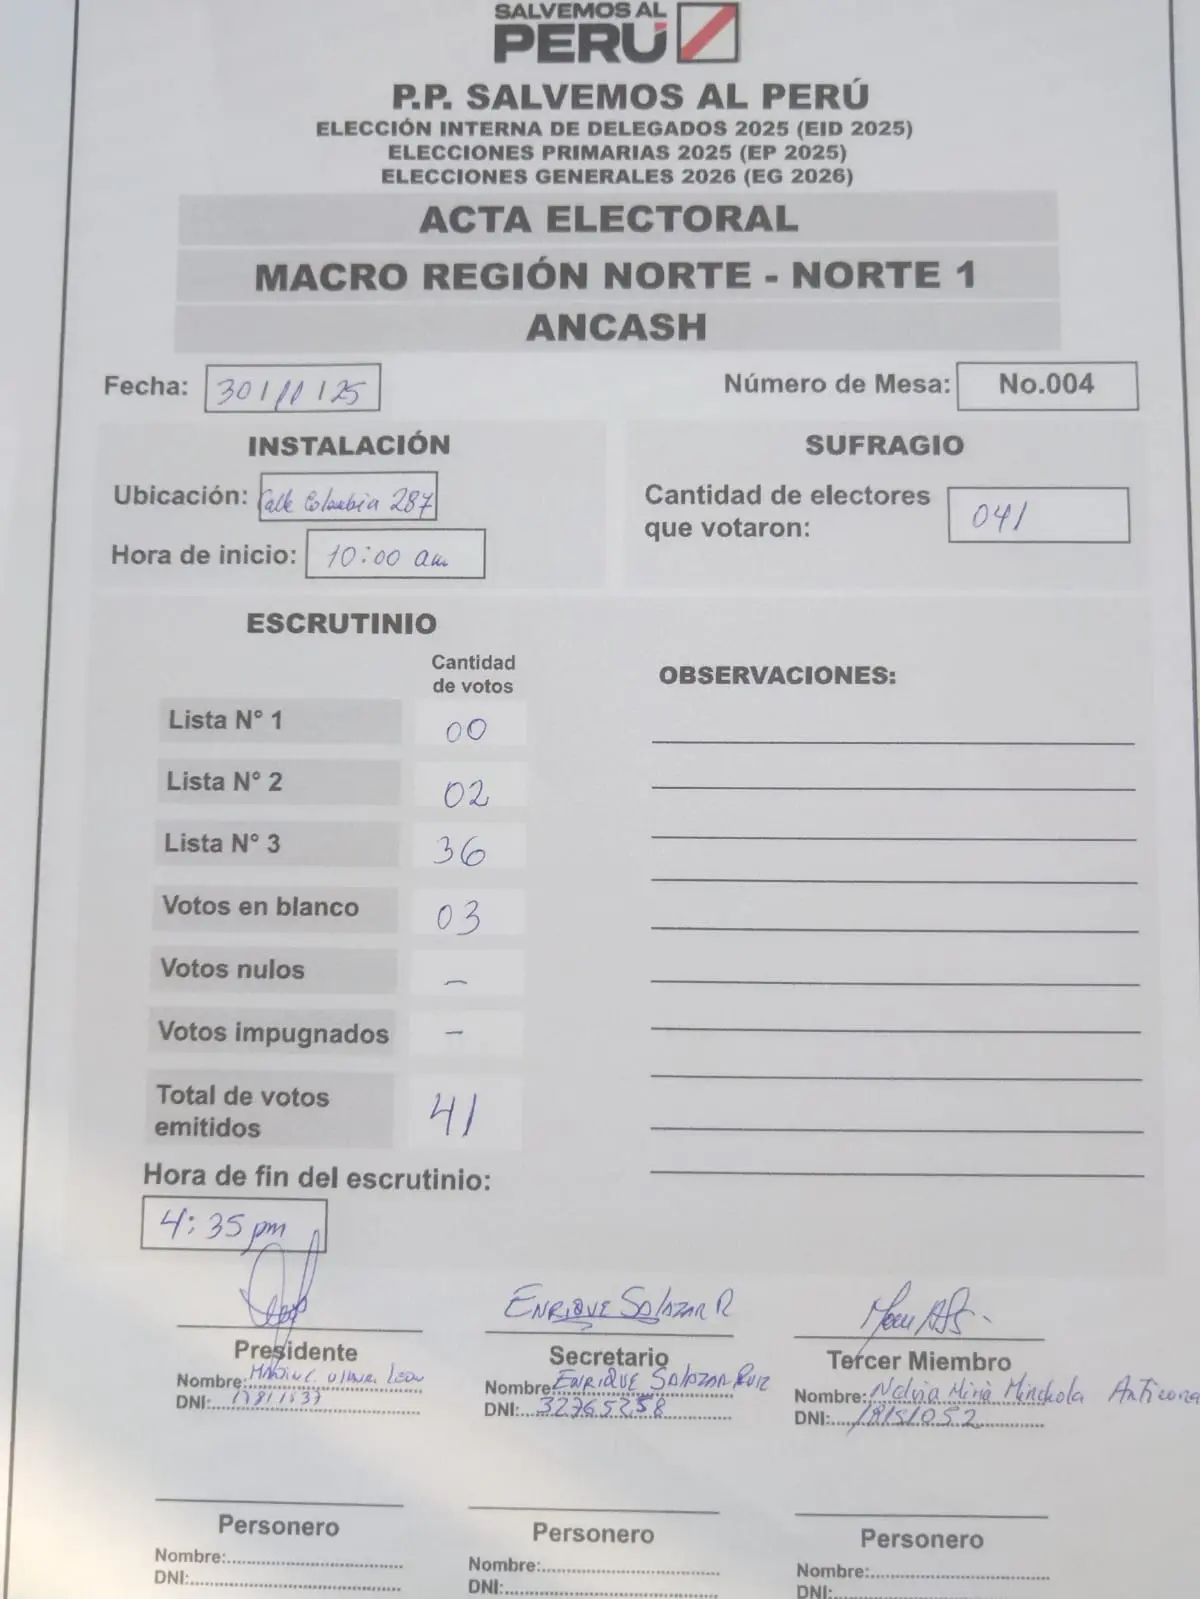 SALVEMOS AL
PERÚ
P.P. SALVEMOS AL PERÚ
ELECCIÓN INTERNA DE DELEGADOS 2025 (EID 2025)
ELECCIONES PRIMARIAS 2025 (EP 2025)
ELECCIONES GENERALES 2026 (EG 2026)
ACTA ELECTORAL
MACRO REGIÓN NORTE - NORTE 1
ANCASH
Fecha: 30/11/25 Número de Mesa: No.004
INSTALACIÓN
Ubicación: Calle Colombia 287
Hora de inicio: 10:00 am
SUFRAGIO
Cantidad de electores
que votaron: 041
ESCRUTINIO
Cantidad
de votos
Lista N° 1 00
Lista N° 2 02
Lista N° 3 36
Votos en blanco 03
Votos nulos —
Votos impugnados —
Total de votos
emitidos 41
OBSERVACIONES:
Hora de fin del escrutinio:
4:35 pm
ENRIQUE SALAZAR R
Presidente
Nombre: León
DNI:
Secretario
Nombre: ENRIQUE SALAZAR RUIZ
DNI: 32765258
Tercer Miembro
Nombre: Minchola Anticona
DNI:
Personero
Nombre:
DNI:
Personero
Nombre:
DNI:
Personero
Nombre:
DNI: